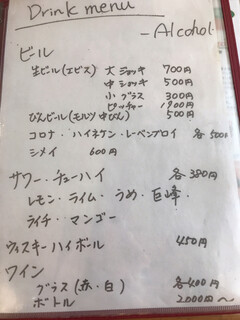 Drink menu
- Alcohol -
ビール
生ビール(エビス) 大ジョッキ 700円
中ジョッキ 500円
小グラス 300円
ピッチャー 1900円
びんビール(モルツ 中びん) 500円
コロナ・ハイネケン・レーベンブロイ 各500円
シメイ 600円
サワー・チューハイ 各380円
レモン・ライム・うめ・巨峰・
ライチ・マンゴー
ウィスキーハイボール 450円
ワイン
グラス(赤・白) 各400円
ボトル 2000円〜